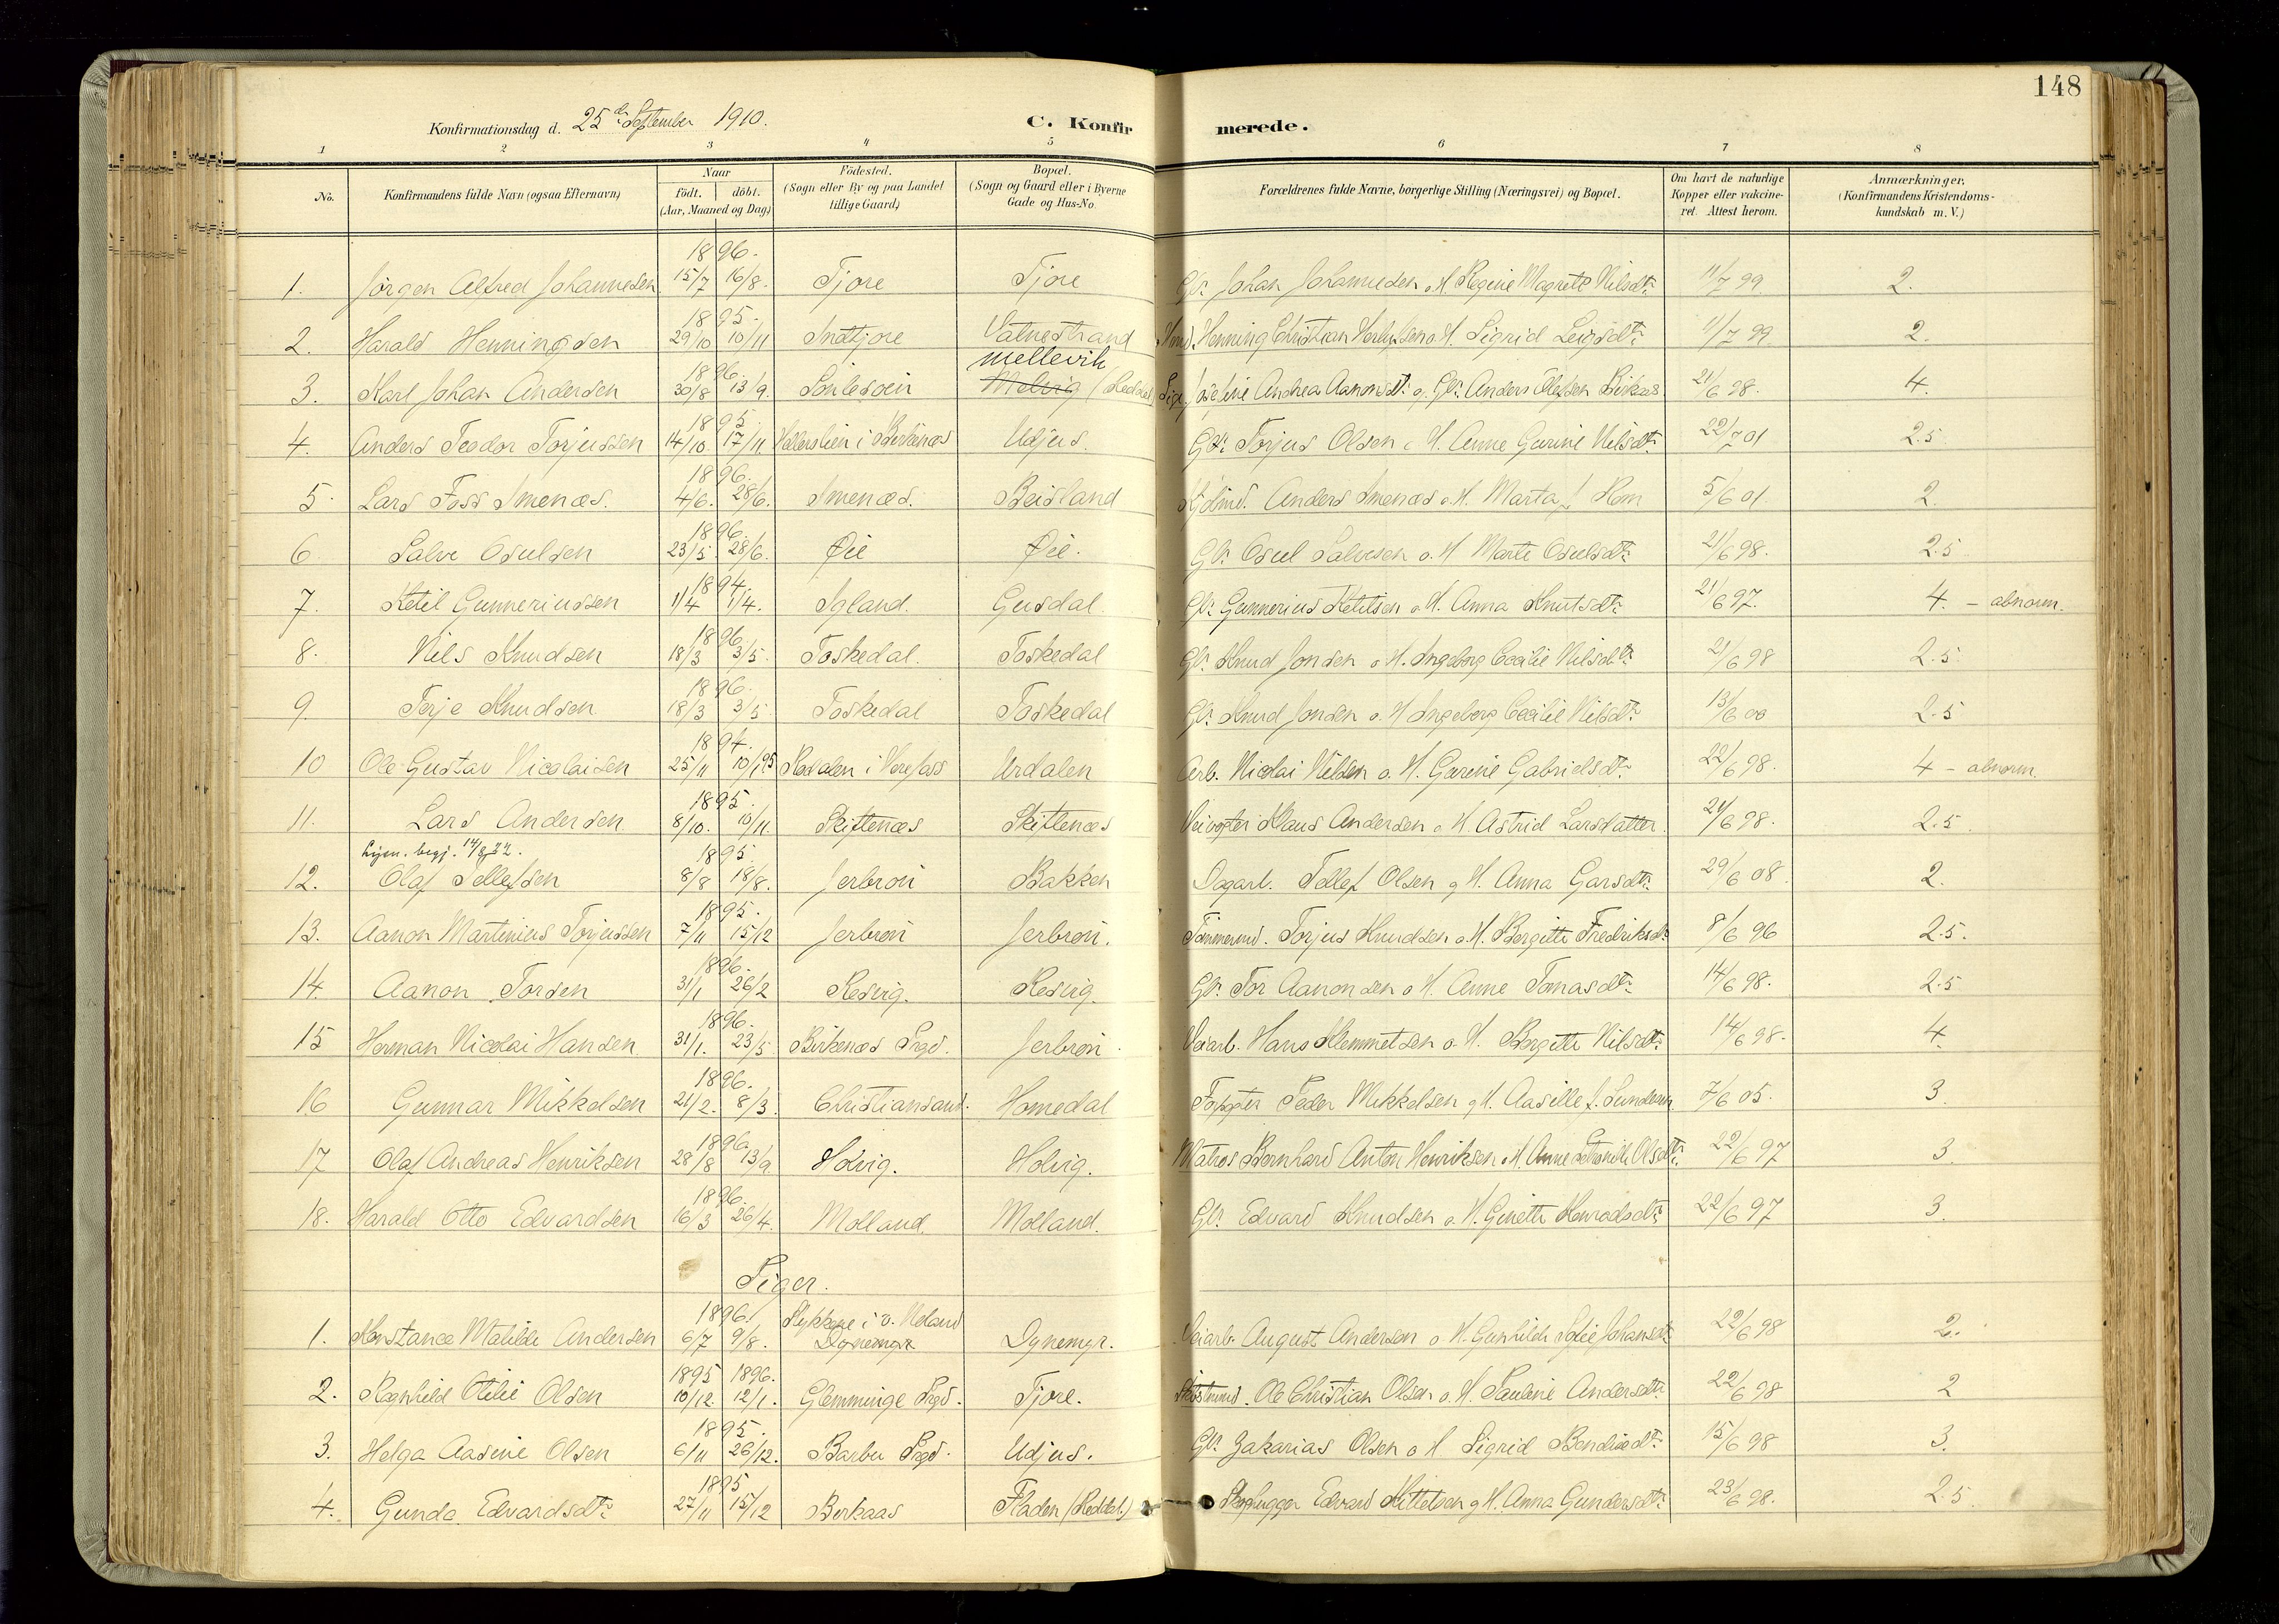 148
Konfirmationsdag d. 25de September 1910.
C. Konfirmerede.
1 2 3 4 5 6 7 8
No.
Konfirmandens fulde Navn (ogsaa Efternavn)
Naar
födt. döbt.
(Aar, Maaned og Dag)
Födested.
(Sogn eller By og paa Landet
tillige Gaard)
Bopæl.
(Sogn og Gaard eller i Byerne
Gade og Hus-No.
Forældrenes fulde Navne, borgerlige Stilling (Næringsvei) og Bopæl.
Om havt de naturlige
Kopper eller vakcine-
ret. Attest herom.
Anmærkninger,
(Konfirmandens Kristendoms-
kundskab m. V.)
1896.
1. Jörgen Alfred Johannesen 15/7 16/8. Tjore Tjore Gbr. Johan Johannesen o. H. Regine Magrete Nilsdtr. 11/7 99. 2.
1895.
2. Harald Henningsen 29/10 10/11 Indtjore Vatnestrand Henning Christian o. H. Sigrid Leigsdtr. 11/7 99. 2.
1896. mellevik
3. Karl Johan Andersen 30/8 13/9. Melvig (Reddal) Pige Josefine Andrea Aanonsdtr. g. Gbr. Anders Olefsen Birkaas 21/6 98. 4.
1895.
4. Anders Teodor Torjussen 14/10. 17/11. i Birkenæs Udjus. Gbr. Torjus Olsen o H. Anne Gurine Nilsdtr. 22/7 01 2.5
1896.
5. Lars Foss Imenæs. 4/6. 28/6. Imenæs. Beisland Anders Imenæs o. H. Marta f. Hom 5/6 01. 2.
1896.
6. Salve Osulsen 23/5. 28/6. Øie Øie. Gbr. Osul Salvesen o. H. Marte Osulsdtr. 21/6 98. 2.5
1894.
7. Ketil Gunneriussen 1/4 1/4. Igland. Gusdal. Gbr. Gunnerius Ketilsen o. H. Anna Knutsdtr. 21/6 97. 4. – abnorm.
1896.
8. Nils Knudsen 18/3 3/5. Toskedal. Toskedal Gbr. Knud Jonsen o. H. Ingeborg Cecilie Nilsdtr. 21/6 98 2.5
1896.
9. Terje Knudsen 18/3 3/5 Toskedal Toskedal Gbr. Knud Jonsen o. H. Ingeborg Cecilie Nilsdtr. 13/6 00 2.5
1894.
10 Ole Gustav Nicolaisen 25/11 10/1 95 i Urdalen Arb. Nicolai Nilsen o. H. Gurine Gabrielsdtr. 22/6 98. 4 – abnorm.
1895.
11. Lars Andersen 8/10. 10/11. Skiftenæs Skiftenæs Veivogter Klaus Andersen o H. Astrid Larsdatter. 21/6 98. 2.5.
begj. 14/8 32. 1895.
12. Olaf Tellefsen 8/8 18/8. Jerbrøn Bakken Dagarb. Tellef Olsen g H. Anna Garsdtr. 29/6 08. 2.
1895.
13. Aanon Martinius Torjussen 7/11 15/12 Jerbrøn Jerbrøn. Tömmermd. Torjus Knudsen o. H. Bergitte Fredriksdtr. 8/6 96 2.5.
1896.
14. Aanon Torsen 31/1 26/2 Resvig. Resvig. Gbr. Tor Aanonsen o H. Anne Tomasdtr. 14/6 98. 2.5
1896.
15 Herman Nicolai Hansen 31/1. 23/5 Birkenæs Prgd. Jerbrøn. Veiarb. Hans Klemmetsen o. H. Bergitte Nilsdtr. 14/6 98. 4.
1896.
16 Gunnar Mikkelsen 21/2. 8/3. Christiansand. Homedal Peder Mikkelsen g H. Aasille f. 7/6 05. 3.
1896.
17 Olaf Andreas Henriksen 28/8 13/9 Holvig. Holvig. Matros Bernhard Anton Henriksen o H. Anne Olsdtr. 22/6 97 3.
1896.
18. Harald Otto Edvardsen 16/3 26/4. Molland. Molland. Gbr. Edvard Knudsen o. H. Ginette Konradsdtr. 22/6 97 3.
Piger.
1896. Stykkene i ö. Moland
1. Konstance Matilde Andersen 6/7 9/8. Dynemyr Dynemyr. Veiarb. August Andersen o H. Gunhilde Sofie Johansdtr. 22/6 98 2.
1895 1896.
2. Ragnhild Otilie Olsen 10/12. 12/1. Glemminge Prgd. Tjore. Ole Christian Olsen o. H. Pauline Andersdtr. 22/6 98 2
1895.
3. Helga Aasine Olsen 6/11 26/12. Barbu Prgd. Udjus. Gbr. Zakarias Olsen o H Sigrid Bendixdtr. 15/6 98 3.
1895
4. Gunda Edvardsdtr. 27/11 15/12 Birkaas Fladen (Reddal.) Skoghugger Edvard Kittelsen g H. Anna Gundersdtr. 23/6 98. 2.5